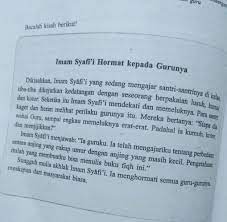 Bacalah kisah berikut!
Imam Syafi'i Hormat kepada Gurunya
Dikisahkan, Imam Syafi'i yang sedang mengajar santri-santrinya di kelas
tiba-tiba dikejutkan kedatangan dengan seseorang berpakaian lusuh, kumal
dan kotor. Seketika itu Imam Syafi'i mendekati dan memeluknya. Para santri
kaget dan heran melihat perilaku gurunya itu. Mereka bertanya: "Siapa dia
wahai Guru, sampai engkau memeluknya erat-erat. Padahal ia kumuh, kotor
dan menjijikkan?"
Imam Syafi'i menjawab: "Ia guruku. Ia telah mengajariku tentang perbedaan
antara anjing yang cukup umur dengan anjing yang masih kecil. Pengetahuan
itulah yang membuatku bisa menulis buku fiqh ini."
Sungguh mulia akhlak Imam Syafi'i. Ia menghormati semua guru-gurunya,
meskipun dari masyarakat biasa.